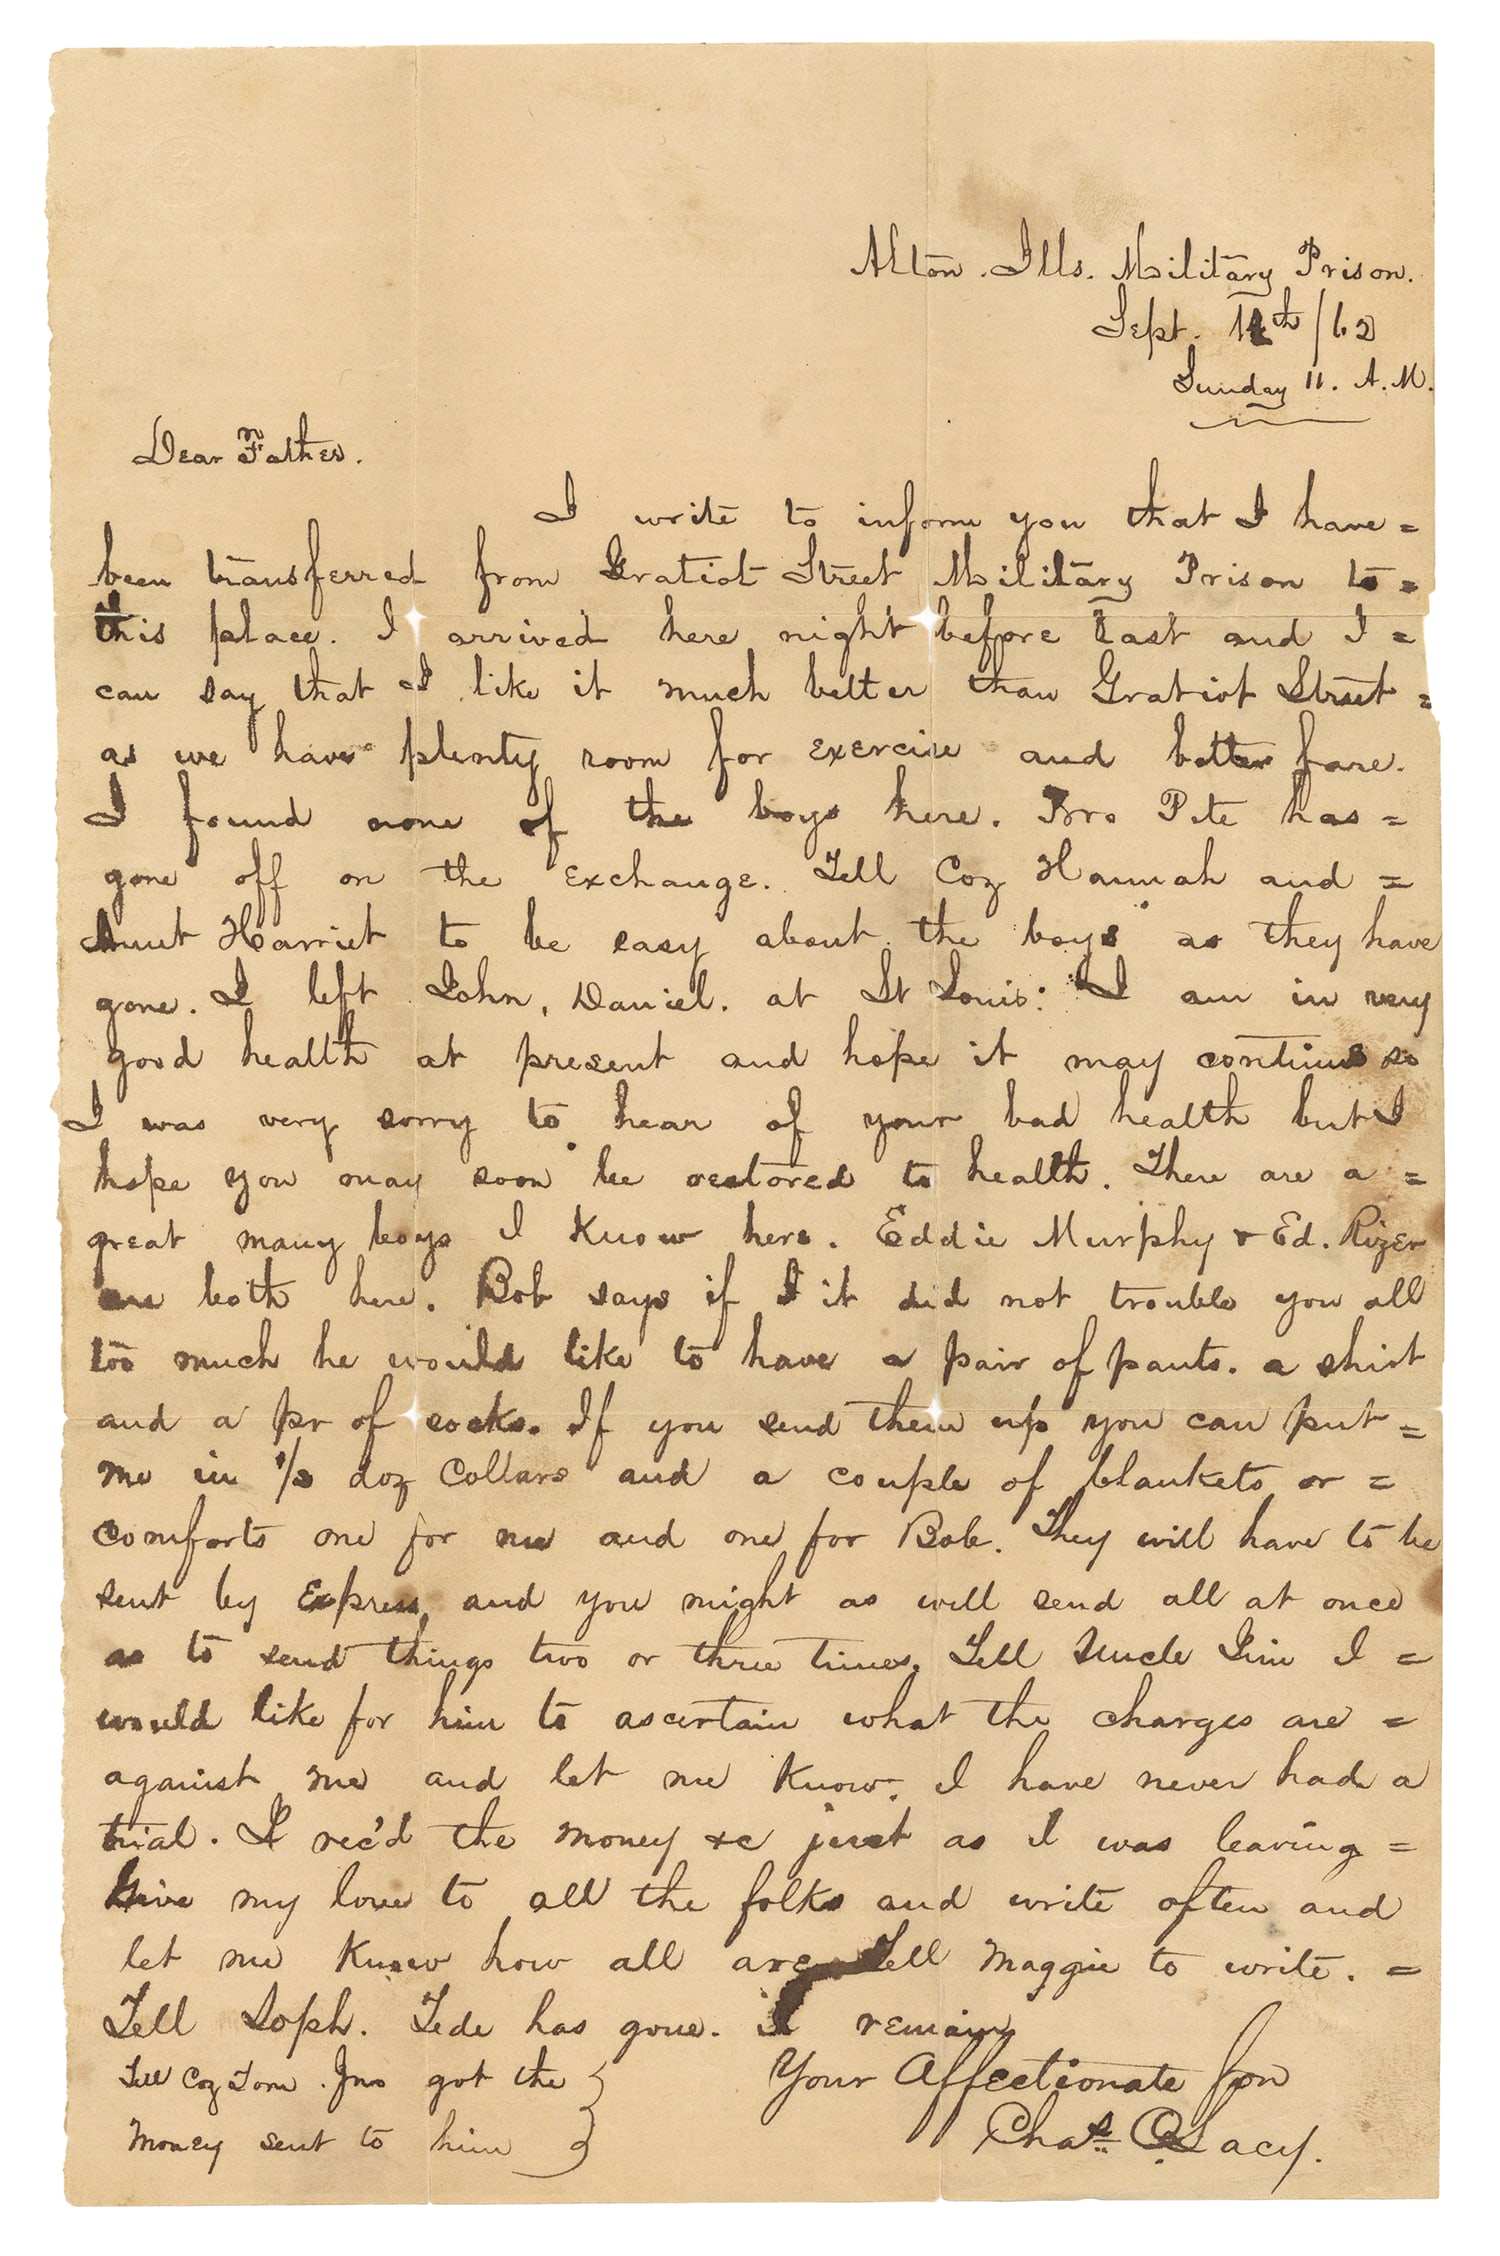 Alton. Ills. Military Prison.
Sept. 14th/62
Sunday 11. A.M.
Dear Father.
I write to inform you that I have =
been transferred from Gratiot Street Military Prison to =
this place. I arrived here night before last and I =
can say that I like it much better than Gratiot Street =
as we have plenty room for exercise and better fare.
I found none of the boys here. Bro Pete has =
gone off on the exchange. Tell Coz Hannah and =
Aunt Harriet to be easy about the boys as they have
gone. I left John, Daniel. at St Louis: I am in very
good health at present and hope it may continue so
I was very sorry to hear of your bad health but I
hope you may soon be restored to health. There are a =
great many boys I know here. Eddie Murphy & Ed. Rizer
are both here. Bob says if it did not trouble you all
too much he would like to have a pair of pants. a shirt
and a pr of socks. If you send them up you can put =
me in 1/2 doz Collars and a couple of blankets or =
comforts one for me and one for Bob. They will have to be
sent by Express, and you might as well send all at once
as to send things two or three times. Tell Uncle Jim I =
would like for him to ascertain what the charges are =
against me and let me know. I have never had a
trial. I rec'd the money &c just as I was leaving =
Give my love to all the folks and write often and
let me know how all are Tell Maggie to write. =
Tell Soph. Tede has gone. I remain
Your Affectionate Son
Chas. Lacy.
Tell Coz Tom. Jno got the
money sent to him